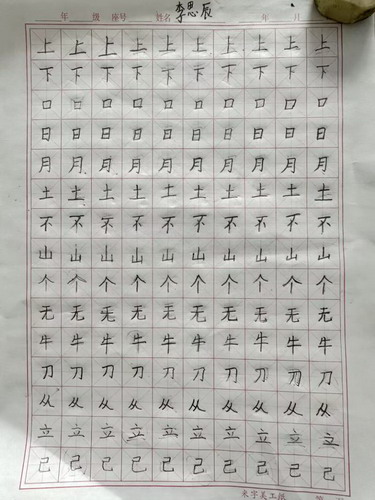 李思辰
年 级 座号 姓名 年 月
上 上 上 上 上 上 上 上 上 上
下 下 下 下 下 下 下 下 下 下
口 口 口 口 口 口 口 口 口 口
日 日 日 日 日 日 日 日 日 日
月 月 月 月 月 月 月 月 月 月
土 土 土 土 土 土 土 土 土 土
不 不 不 不 不 不 不 不 不 不
山 山 山 山 山 山 山 山 山 山
个 个 个 个 个 个 个 个 个 个
无 无 无 无 无 无 无 无 无 无
牛 牛 牛 牛 牛 牛 牛 牛 牛 牛
刀 刀 刀 刀 刀 刀 刀 刀 刀 刀
从 从 从 从 从 从 从 从 从 从
立 立 立 立 立 立 立 立 立 立
己 己 己 己 己 己 己 己 己 己
米字美工纸